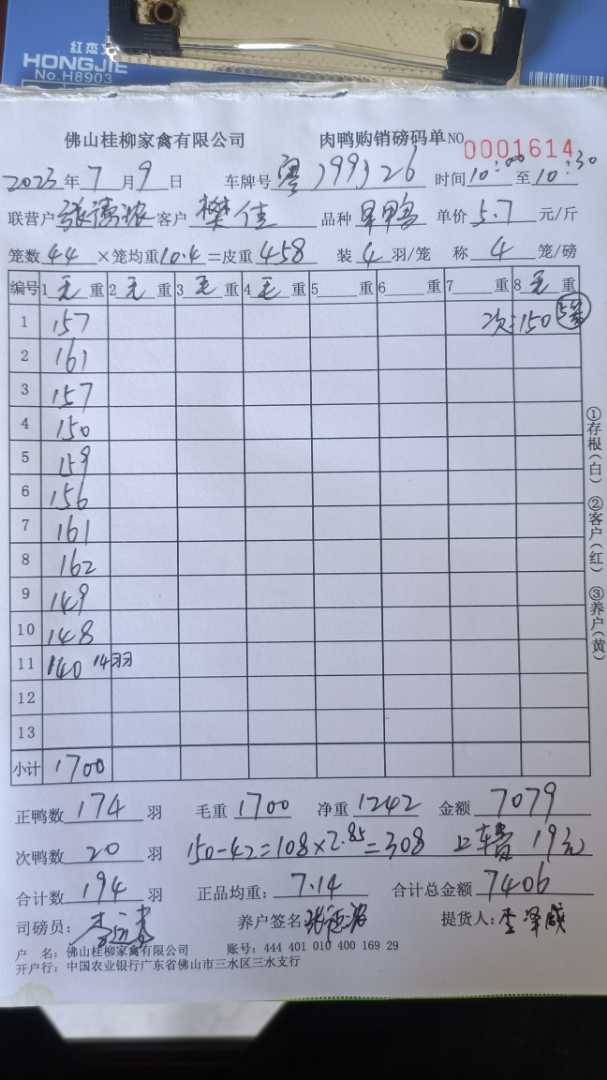 紅杰
HONGJIE
No.H8903
佛山桂柳家禽有限公司 肉鸭购销磅码单 NO 0001614
2023年7月9日 车牌号 粤J99J26 时间10:00至10:30
联营户 客户 樊佳 品种 旱鸭 单价 5.7 元/斤
笼数 44 ×笼均重 10.4 =皮重 458 装 4 羽/笼 称 4 笼/磅
编号 1毛重 2毛重 3毛重 4毛重 5重 6重 7重 8毛重
1 157 次:150
2 161
3 157
4 150
5 159
6 156
7 161
8 162
9 149
10 148
11 140 14羽
12
13
小计 1700
正鸭数 174 羽 毛重 1700 净重 1242 金额 7079
次鸭数 20 羽 150-42=108×2.85=308 上车费 19元
合计数 194 羽 正品均重: 7.14 合计总金额 7406
司磅员: 养户签名 提货人:
户 名: 佛山桂柳家禽有限公司 账号: 444 401 010 400 169 29
开户行: 中国农业银行广东省佛山市三水区三水支行
①存根(白) ②客户(红) ③养户(黄)